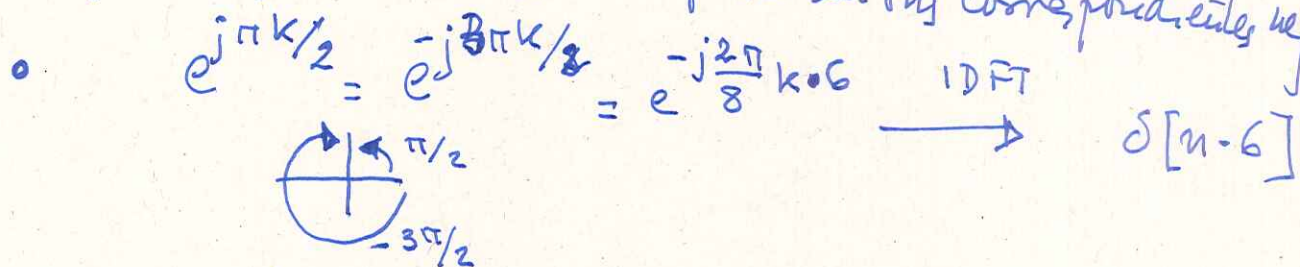 correspondientes
• e^{jπk/2} = e^{-j3πk/2} = e^{-j\frac{2π}{8}k•6} IDFT → δ[n-6]
π/2
-3π/2